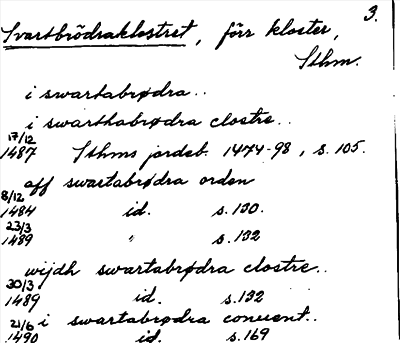 3.
Svartbrödraklostret, förr kloster,
Sthm.
i swartabrødra..
i swarthabrødra clostre..
17/12
1487 Sthms jordeb. 1474-98, s. 105.
aff swartabrødra orden
8/12
1484 id. s. 130.
23/3
1489 " s. 132
wijdh swartabrødra clostre..
30/3
1489 id. s. 132
21/6 i swartabrødra conuent..
1490 id. s. 169